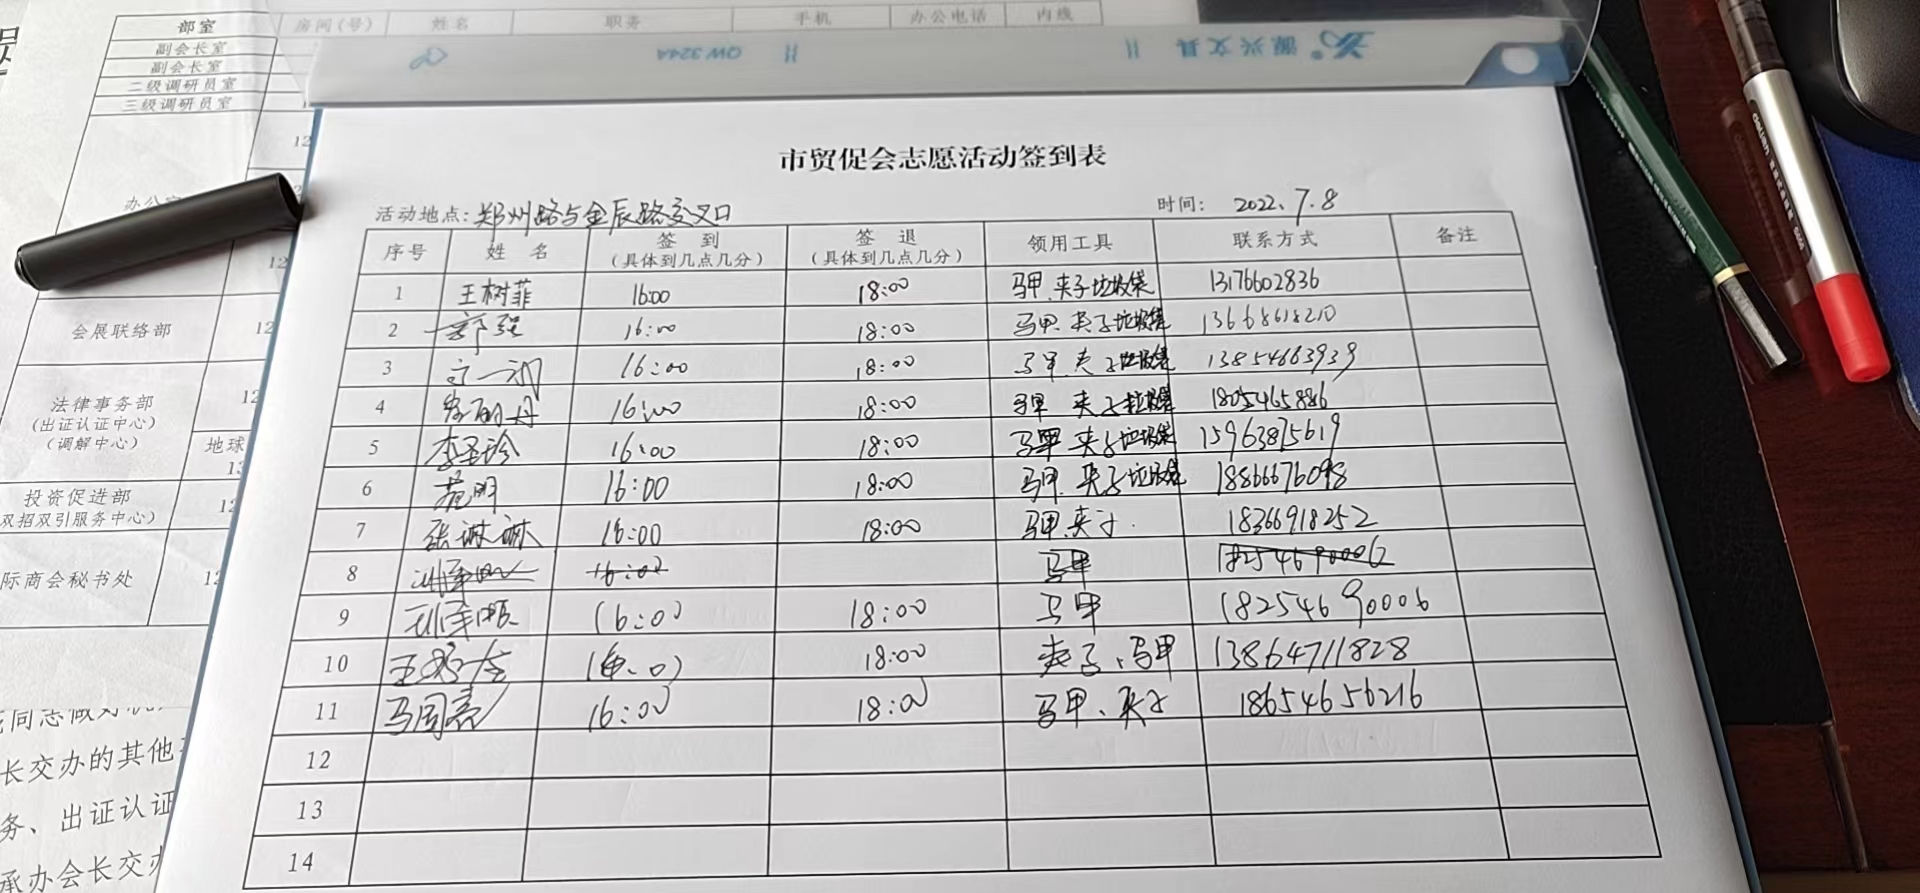 部室 房间(号) 姓名 职务 手机 办公电话 内线
副会长室
副会长室
二级调研员室
三级调研员室
会展联络部
法律事务部
(出证认证中心)
(调解中心)
地球
投资促进部
双招双引服务中心)
际商会秘书处
长交办的其他
务、出证认证
承办会长交办
QW 324A 源兴文具
市贸促会志愿活动签到表
活动地点: 郑州路与金辰路交叉口 时间: 2022.7.8
序号 姓名 签到 签退 领用工具 联系方式 备注
(具体到几点几分) (具体到几点几分)
1 王树菲 16:00 18:00 马甲.夹子垃圾袋 13176602836
2 郭强 16:00 18:00 马甲.夹子垃圾袋 13668618210
3 16:00 18:00 马甲.夹子垃圾袋 13854663939
4 16:00 18:00 马甲 夹子垃圾袋 18054665886
5 李玉珍 16:00 18:00 马甲.夹子垃圾袋 15963875619
6 范明 16:00 18:00 马甲.夹子垃圾袋 18866676098
7 张琳琳 16:00 18:00 马甲.夹子. 18366918252
8 16:00 马甲
9 16:00 18:00 马甲 18254690006
10 18:00 夹子、马甲 13864711828
11 马国亮 16:00 18:00 马甲、夹子 18654656216
12
13
14
deli